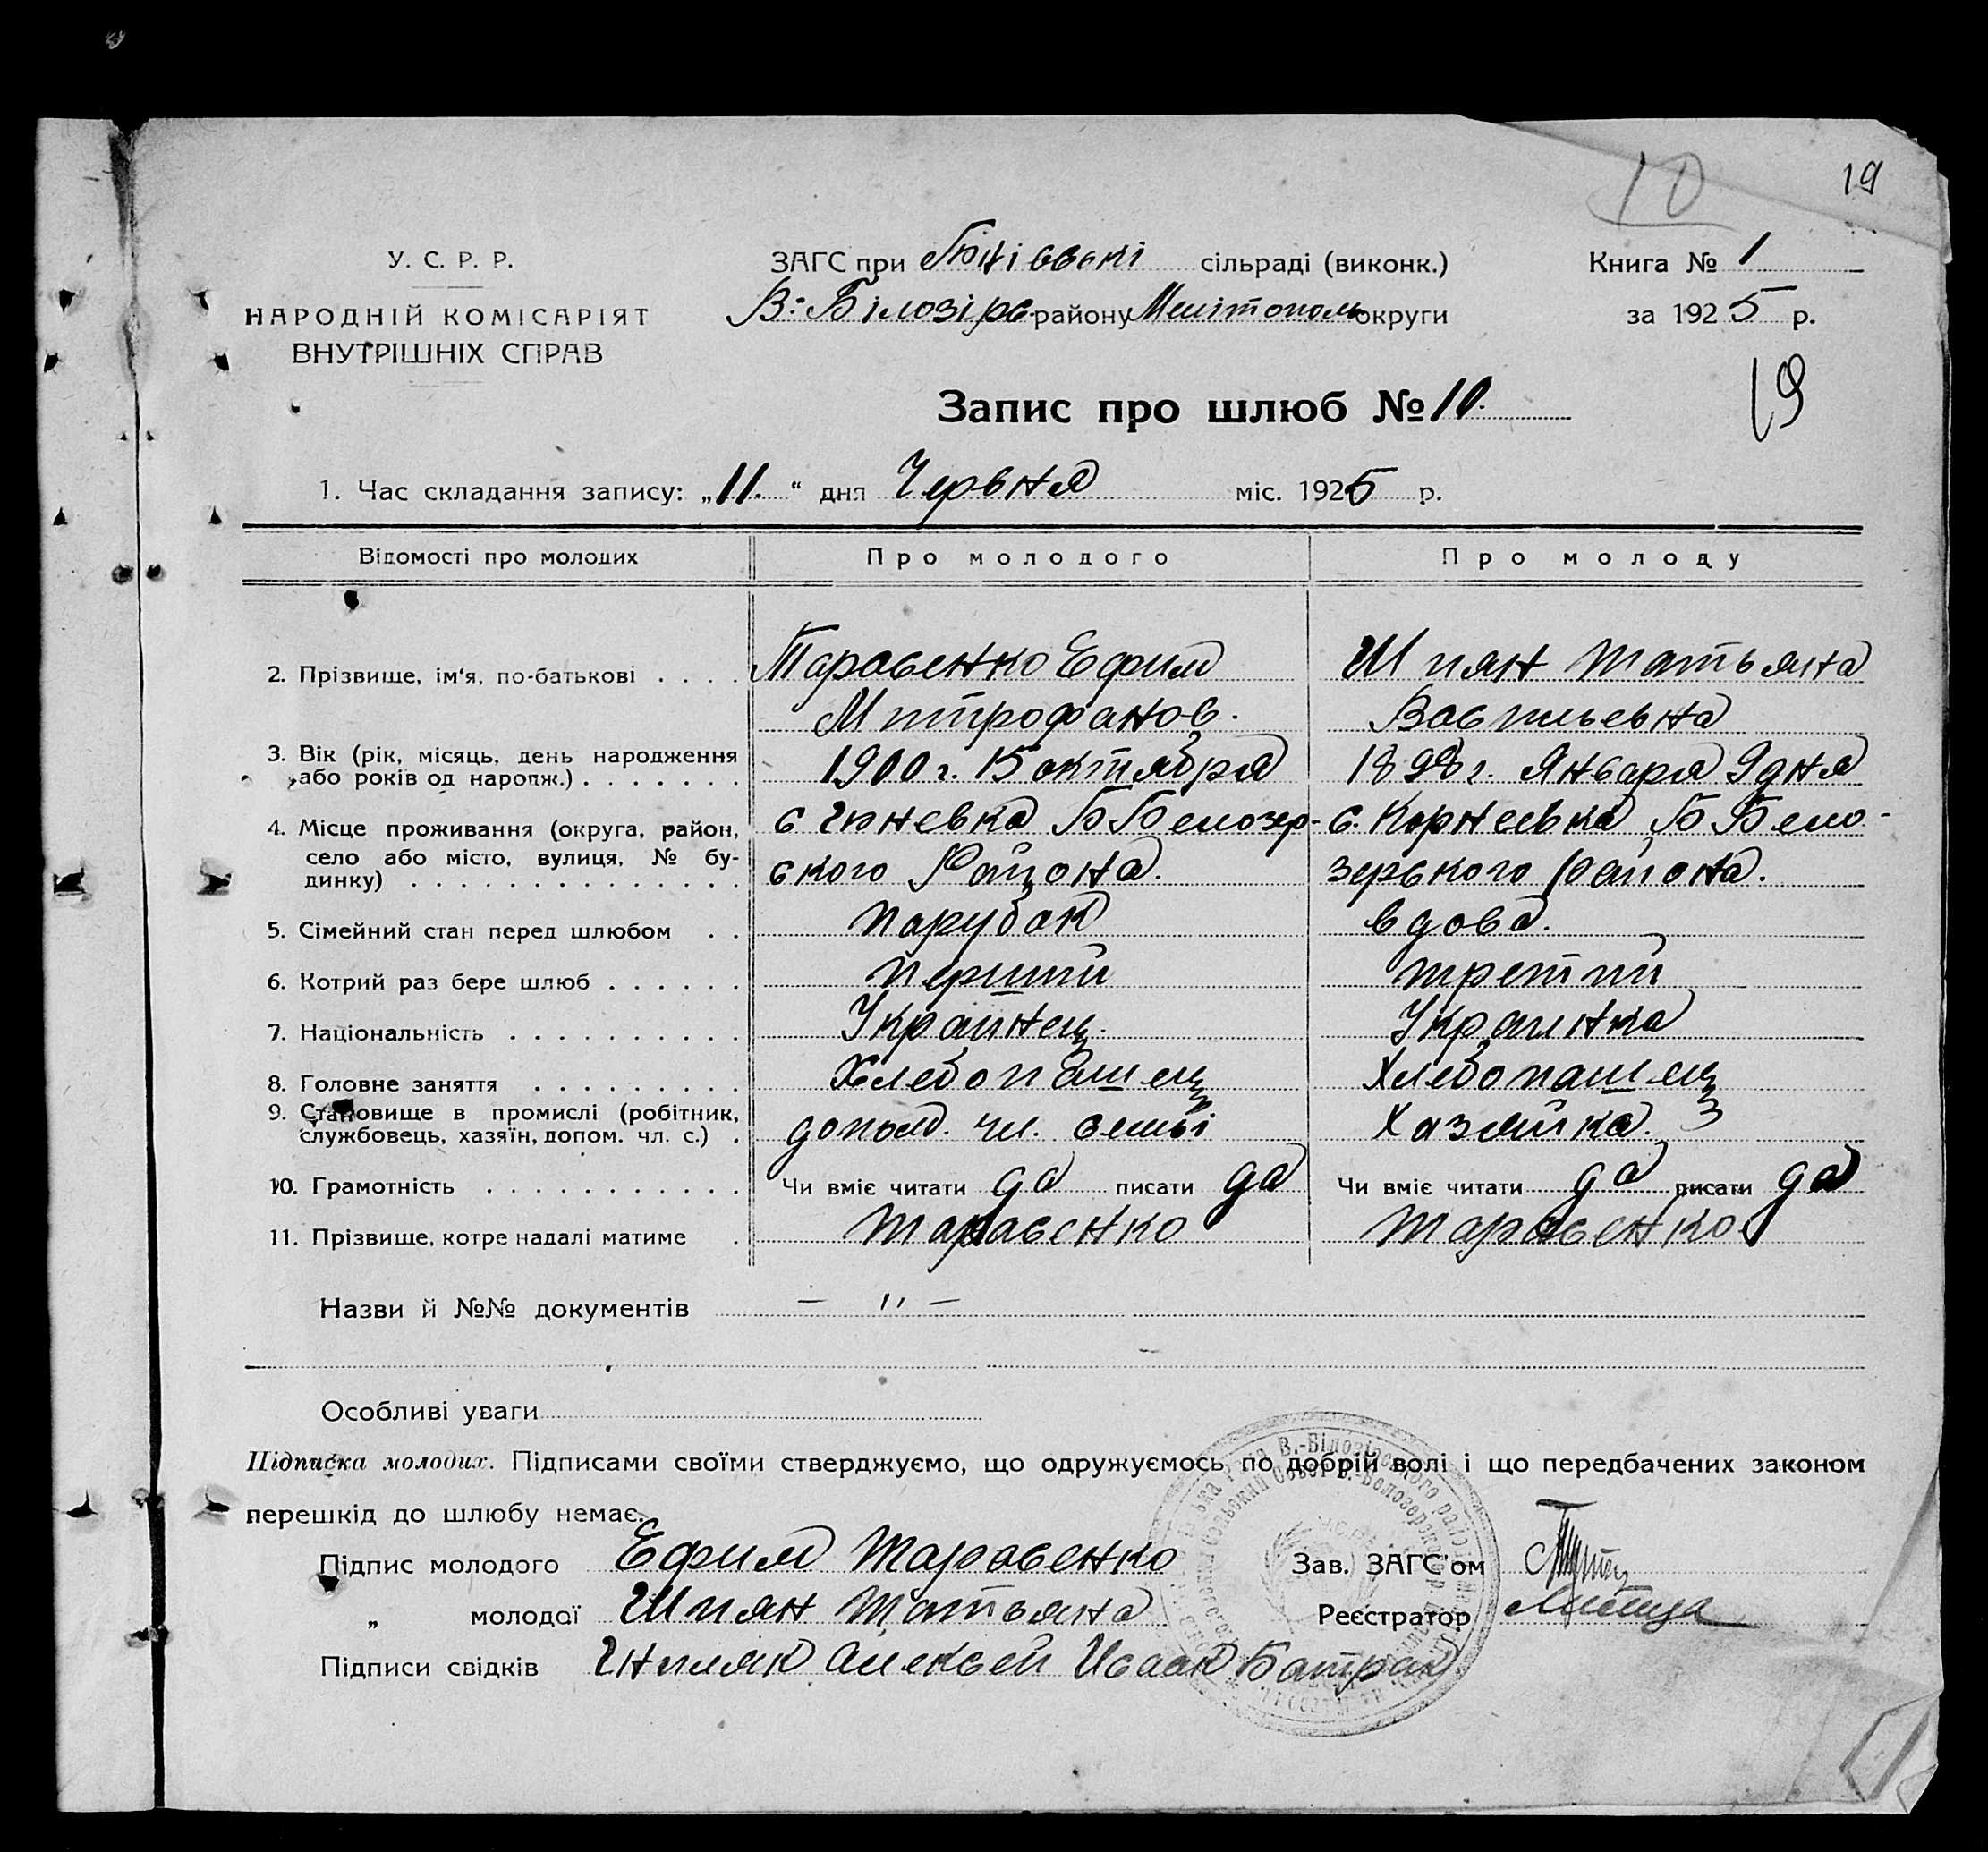 10
19
У. С. Р. Р.
НАРОДНІЙ КОМІСАРІЯТ
ВНУТРІШНІХ СПРАВ
ЗАГС при сільраді (виконк.)
В.-Білозірс. району Мелітополь округи
Книга № 1
за 1925 р.
19
Запис про шлюб № 10.
1. Час складання запису: „11.“ дня Червня міс. 1925 р.
Відомості про молодих
Про молодого
Про молоду
2. Прізвище, ім'я, по-батькові . . . . Тарасенко Ефим Шпян Татьяна
Митрофанов. Васильевна
3. Вік (рік, місяць, день народження
або років од народж.) . . . . . . . 1900 г. 15 октября 1898 г. Января 9 дня
4. Місце проживання (округа, район, с Гюневка Б Белозер- с. Корнеевка Б Бело-
село або місто, вулиця, № бу-
динку) . . . . . . . . . . . . . . ского Района. зерского района.
5. Сімейний стан перед шлюбом . . парубок вдова.
6. Котрий раз бере шлюб . . . . . . перший третий
7. Національність . . . . . . . . . . Украинец. Украинка
8. Головне заняття . . . . . . . . . Хлебопашец Хлебопашец
9. Становище в промислі (робітник,
службовець, хазяїн, допом. чл. с.) . допом. чл. семьі Хазяйка.
10. Грамотність . . . . . . . . . . . Чи вміє читати да писати да Чи вміє читати да писати да
11. Прізвище, котре надалі матиме . Тарасенко Тарасенко
Назви й №№ документів — " —
Особливі уваги
Підписка молодих. Підписами своїми стверджуємо, що одружуємось по добрій волі і що передбачених законом
перешкід до шлюбу немає.
Підпис молодого Ефим Тарасенко Зав. ЗАГС'ом
„ молодої Шпян Татьяна Реєстратор
Підписи свідків Алексей Исаак Батрак